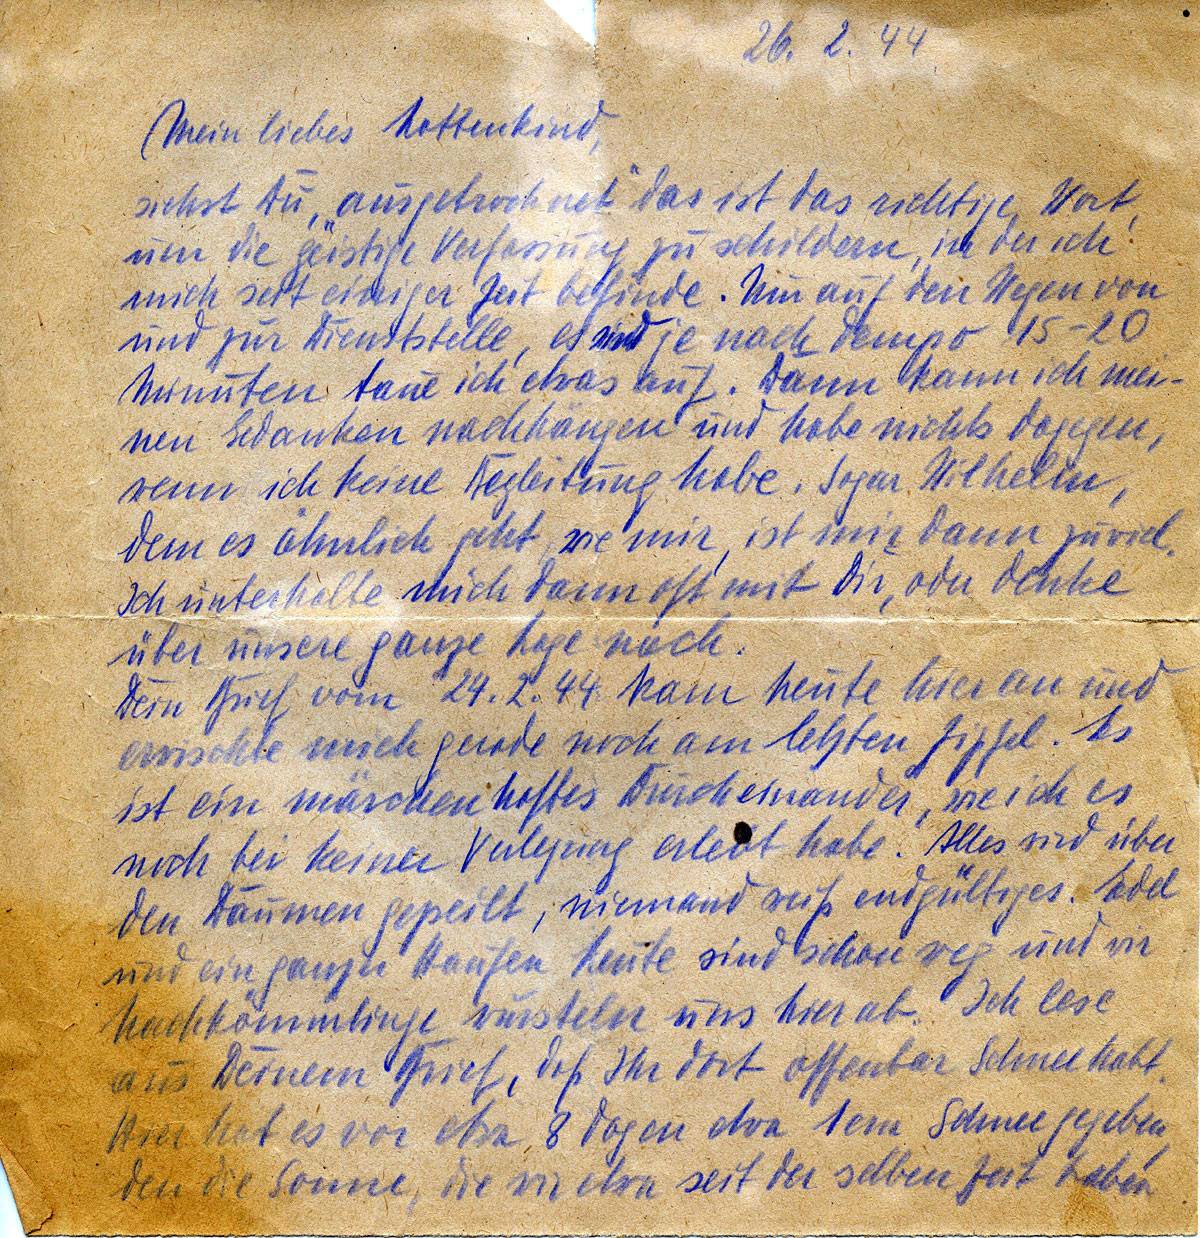 26. 2. 44.
Mein liebes Lottenkind,
siehst Du, „ausgetrocknet" das ist das richtige Wort,
um die geistige Verfassung zu schildern, in der ich
mich seit einiger Zeit befinde. Nur auf den Wegen von
und zur Dienststelle, es sind je nach Tempo 15-20
Minuten taue ich etwas auf. Dann kann ich mei-
nen Gedanken nachhängen und habe nichts dagegen,
wenn ich keine Begleitung habe. Sogar Wilhelm,
dem es ähnlich geht wie mir, ist mir dann zuviel.
Ich unterhalte mich dann oft mit Dir, oder denke
über unsere ganze Lage nach.
Dein Brief vom 24.2.44 kam heute hier an und
erwischte mich gerade noch am letzten Zipfel. Es
ist ein märchenhaftes Durcheinander, wie ich es
noch bei keiner Verlegung erlebt habe. Alles wird über
den Daumen gepeilt, niemand weiß endgültiges. Edel
und ein ganzer Haufen Leute sind schon weg und wir
Nachkömmlinge wursteln uns hier ab. Ich lese
aus Deinem Brief, daß Ihr dort offenbar Schnee habt.
Hier hat es vor etwa 8 Tagen etwa 1cm Schnee gegeben,
den die Sonne, die wir etwa seit der selben Zeit haben